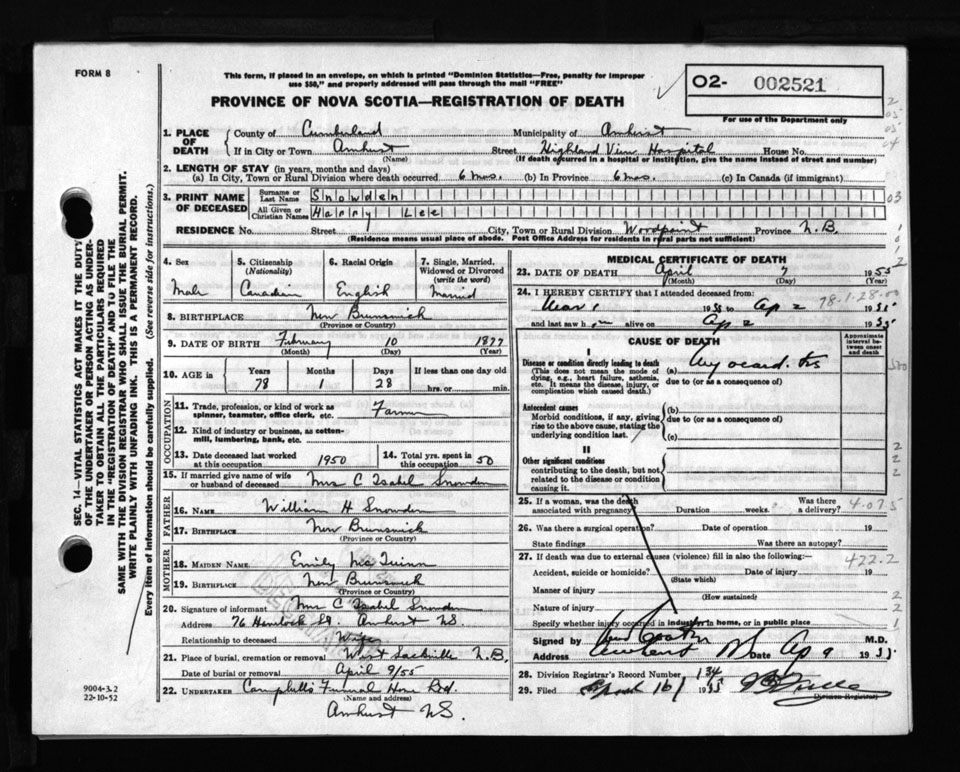 FORM 8
This form, if placed in an envelope, on which is printed "Dominion Statistics—Free, penalty for improper
use $50," and properly addressed will pass through the mail "FREE"
02- 002521
For use of the Department only
PROVINCE OF NOVA SCOTIA—REGISTRATION OF DEATH
SEC. 14—VITAL STATISTICS ACT MAKES IT THE DUTY
OF THE UNDERTAKER OR PERSON ACTING AS UNDER-
TAKER TO OBTAIN ALL THE PARTICULARS REQUIRED
IN THE "REGISTRATION OF DEATH" AND TO FILE THE
SAME WITH THE DIVISION REGISTRAR WHO SHALL ISSUE THE BURIAL PERMIT.
WRITE PLAINLY WITH UNFADING INK. THIS IS A PERMANENT RECORD.
Every item of information should be carefully supplied. (See reverse side for instructions.)
1. PLACE OF DEATH County of Cumberland Municipality of Amherst
If in City or Town Amherst Street Highland View Hospital House No.
(Name) (If death occurred in a hospital or institution, give the name instead of street and number)
2. LENGTH OF STAY (in years, months and days)
(a) In City, Town or Rural Division where death occurred 6 mos. (b) In Province 6 mos. (c) In Canada (if immigrant)
3. PRINT NAME OF DECEASED Surname or Last Name Snowden
All Given or Christian Names Harry Lee
RESIDENCE No. Street City, Town or Rural Division Woodpoint Province N.B.
(Residence means usual place of abode. Post Office Address for residents in rural parts not sufficient)
4. Sex Male
5. Citizenship (Nationality) Canadian
6. Racial Origin English
7. Single, Married, Widowed or Divorced (write the word) Married
8. BIRTHPLACE New Brunswick
(Province or Country)
9. DATE OF BIRTH February 10 1877
(Month) (Day) (Year)
10. AGE in Years Months Days If less than one day old
78 1 28 hrs. or min.
OCCUPATION
11. Trade, profession, or kind of work as spinner, teamster, office clerk, etc. Farmer
12. Kind of industry or business, as cotton-mill, lumbering, bank, etc.
13. Date deceased last worked at this occupation 1950
14. Total yrs. spent in this occupation 50
15. If married give name of wife or husband of deceased Mrs C Isabel Snowden
FATHER
16. Name William H Snowden
17. Birthplace New Brunswick
(Province or Country)
MOTHER
18. MAIDEN NAME Emily
19. BIRTHPLACE New Brunswick
(Province or Country)
20. Signature of informant Mrs C Isabel Snowden
Address 76 Hemlock St. Amherst NS.
Relationship to deceased Wife
21. Place of burial, cremation or removal West Sackville N.B.
Date of burial or removal April 9/55
22. UNDERTAKER Campbell's Funeral Home Ltd.
(Name and address)
Amherst NS.
9004-3.2
22-10-52
MEDICAL CERTIFICATE OF DEATH
23. DATE OF DEATH April 7 1955
(Month) (Day) (Year)
24. I HEREBY CERTIFY that I attended deceased from:
1955 to Ap 2 1955
and last saw him alive on Ap 2 1955
78-1-28
CAUSE OF DEATH
Approximate interval between onset and death
I
Disease or condition directly leading to death
(This does not mean the mode of dying, e.g., heart failure, asthenia, etc. It means the disease, injury, or complication which caused death.)
(a) Myocarditis
due to (or as a consequence of)
Antecedent causes
Morbid conditions, if any, giving rise to the above cause, stating the underlying condition last.
(b)
due to (or as a consequence of)
(c)
II
Other significant conditions
contributing to the death, but not related to the disease or condition causing it.
25. If a woman, was the death associated with pregnancy Duration weeks. Was there a delivery?
4-07-5
26. Was there a surgical operation? Date of operation 19
State findings Was there an autopsy?
27. If death was due to external causes (violence) fill in also the following:—
422.2
Accident, suicide or homicide? Date of injury 19
(State which)
Manner of injury
(How sustained)
Nature of injury
Specify whether injury occurred in industry, in home, or in public place
Signed by M.D.
Address Amherst NS Date Ap 9 1955
28. Division Registrar's Record Number 134
29. Filed 16 1955
Division Registrar